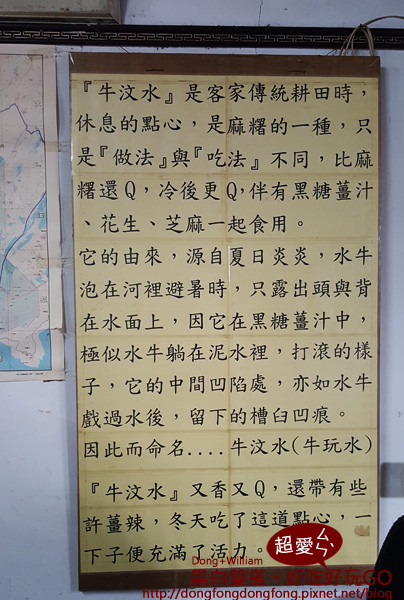 『牛汶水』是客家傳統耕田時，
休息的點心，是麻糬的一種，只
是『做法』與『吃法』不同，比麻
糬還Q，冷後更Q，伴有黑糖薑汁
、花生、芝麻一起食用。
它的由來，源自夏日炎炎，水牛
泡在河裡避暑時，只露出頭與背
在水面上，因它在黑糖薑汁中，
極似水牛躺在泥水裡，打滾的樣
子，它的中間凹陷處，亦如水牛
戲過水後，留下的槽臼凹痕。
因此而命名....牛汶水(牛玩水)
『牛汶水』又香又Q，還帶有些
許薑辣，冬天吃了這道點心，一
下子便充滿了活力。
超愛ㄙ
Dong+William
好吃好玩GO
http://dongfongdongfong.pixnet.net/blog